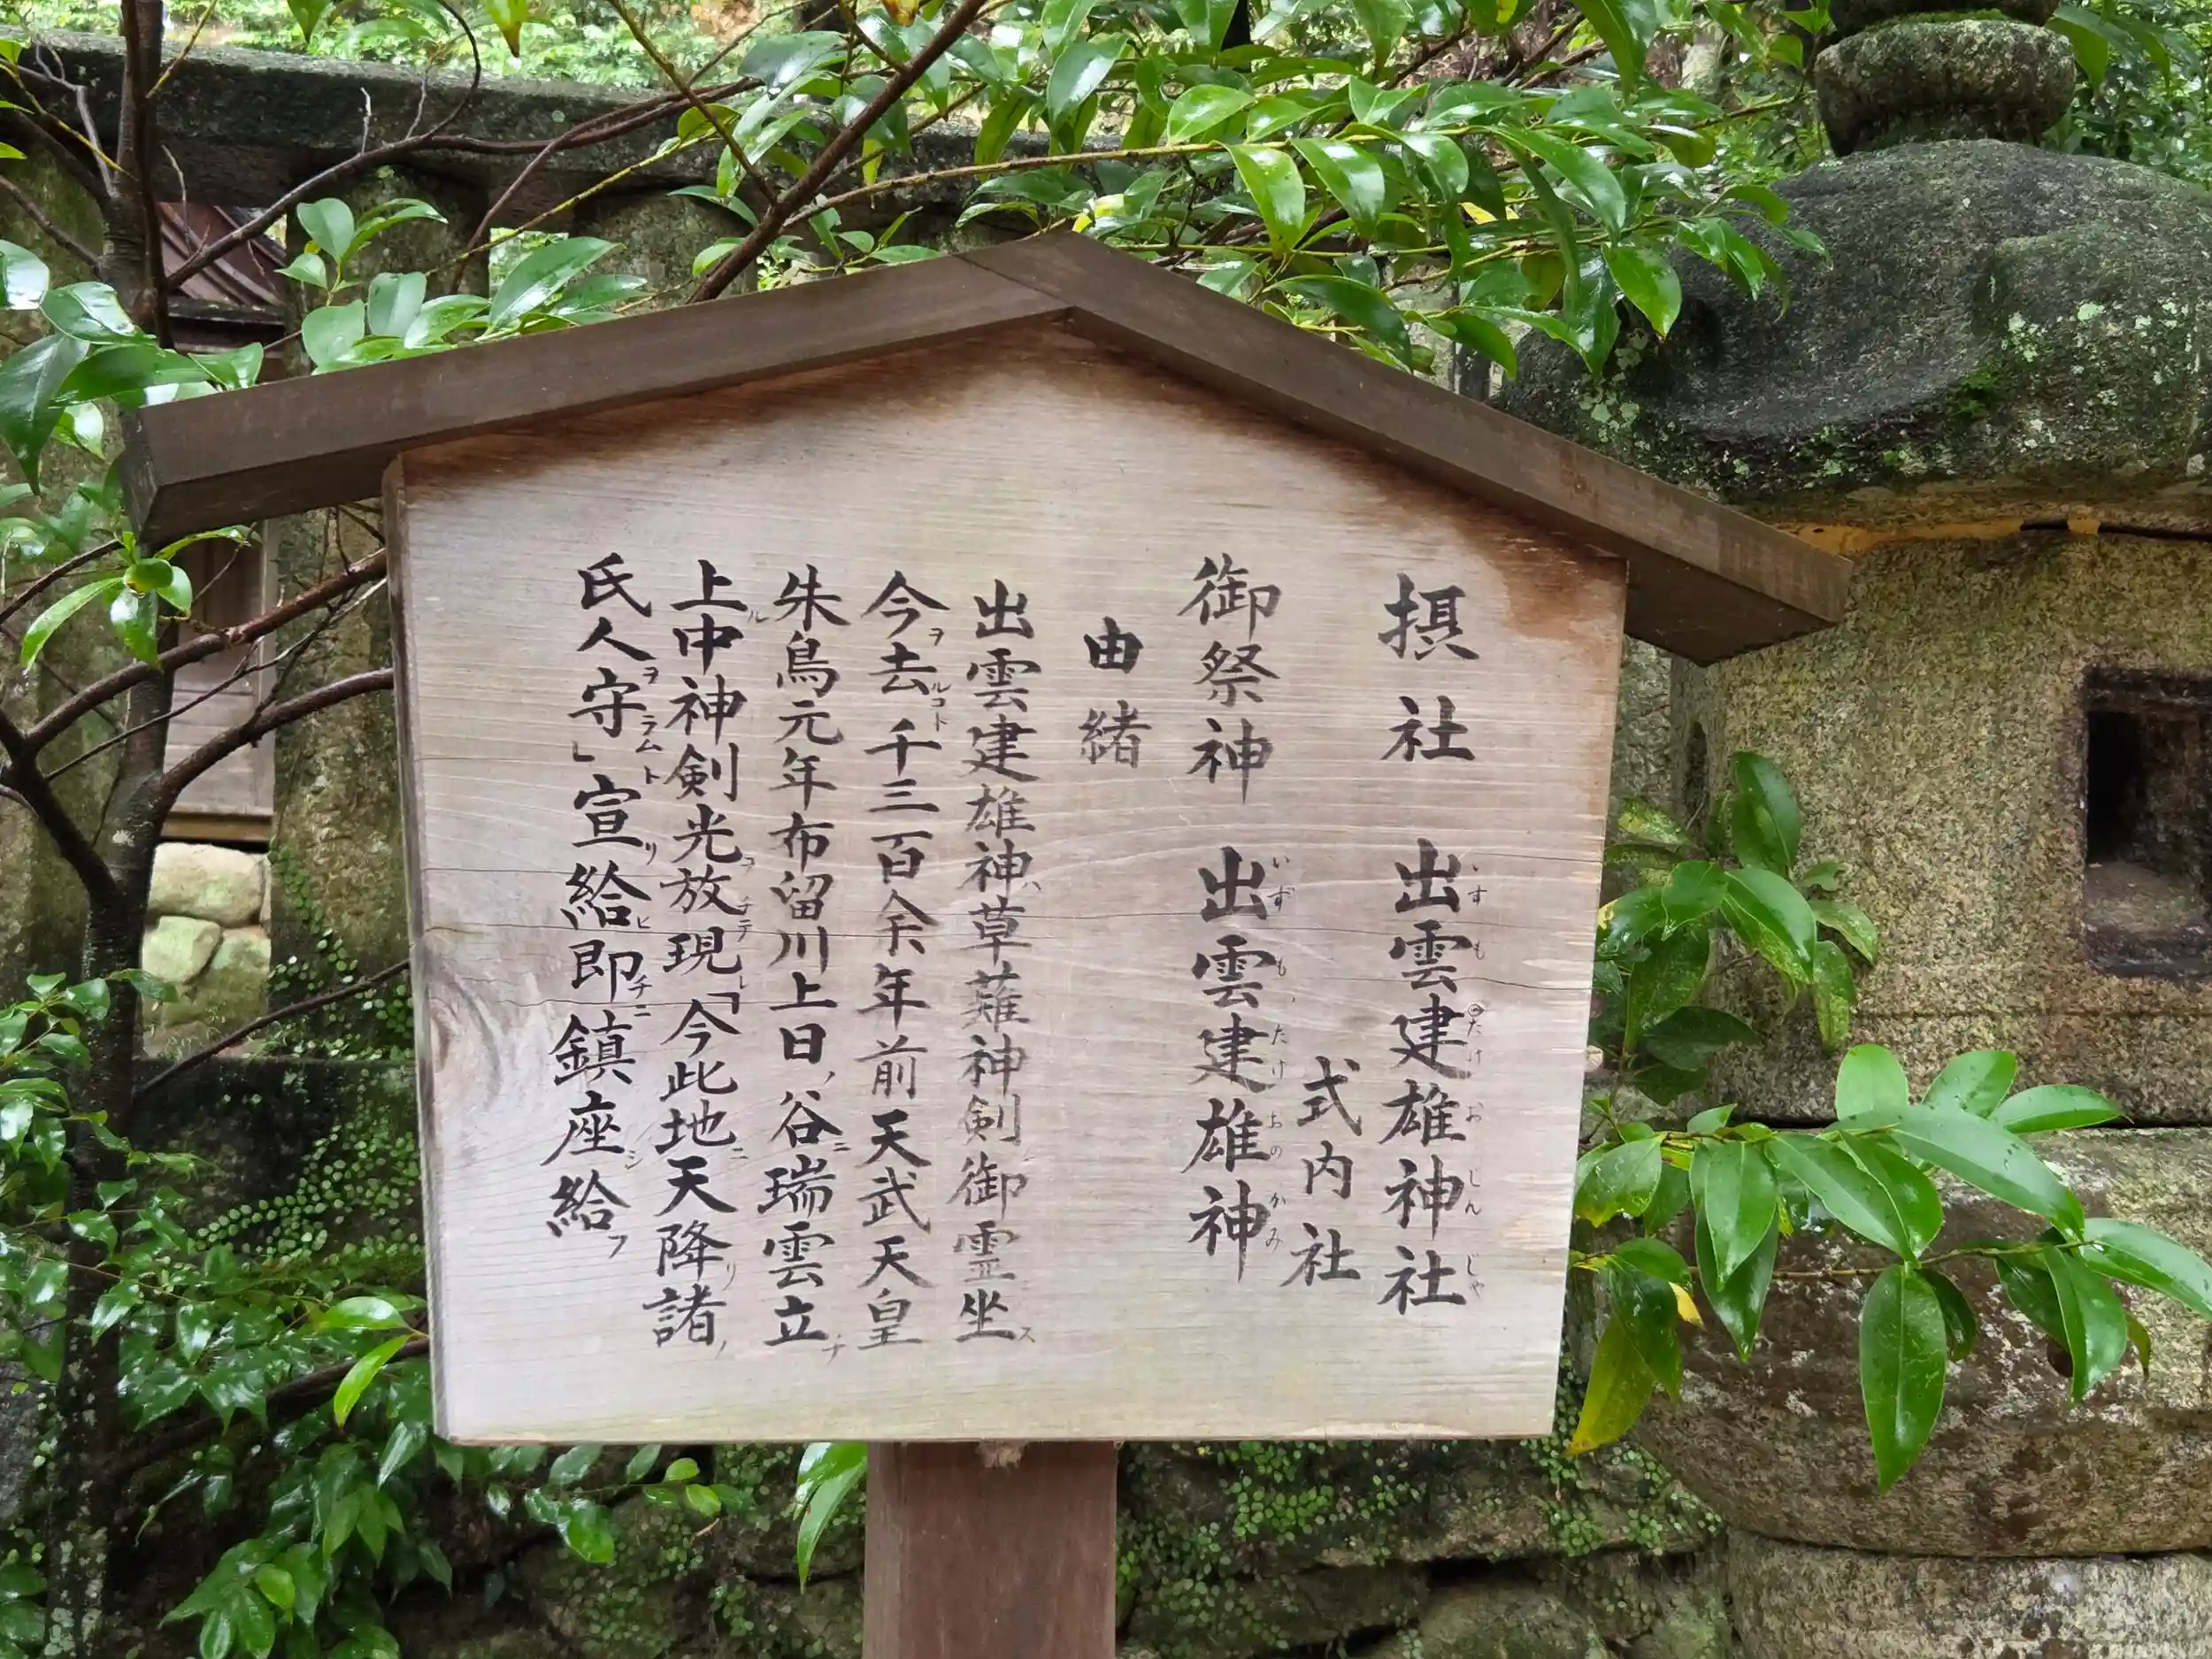 摂社　出雲建雄神社
式内社
御祭神　出雲建雄神
由緒
出雲建雄神、草薙神剣御霊坐ス
今ヲ去ルコト千三百余年前天武天皇
朱鳥元年布留川上日ノ谷ニ瑞雲立チ
上ル中神剣光ヲ放チテ現レ「今此地ニ天降リ諸ノ
氏人ヲ守ラムト」宣リ給ヒ即チニ鎮座シ給フ